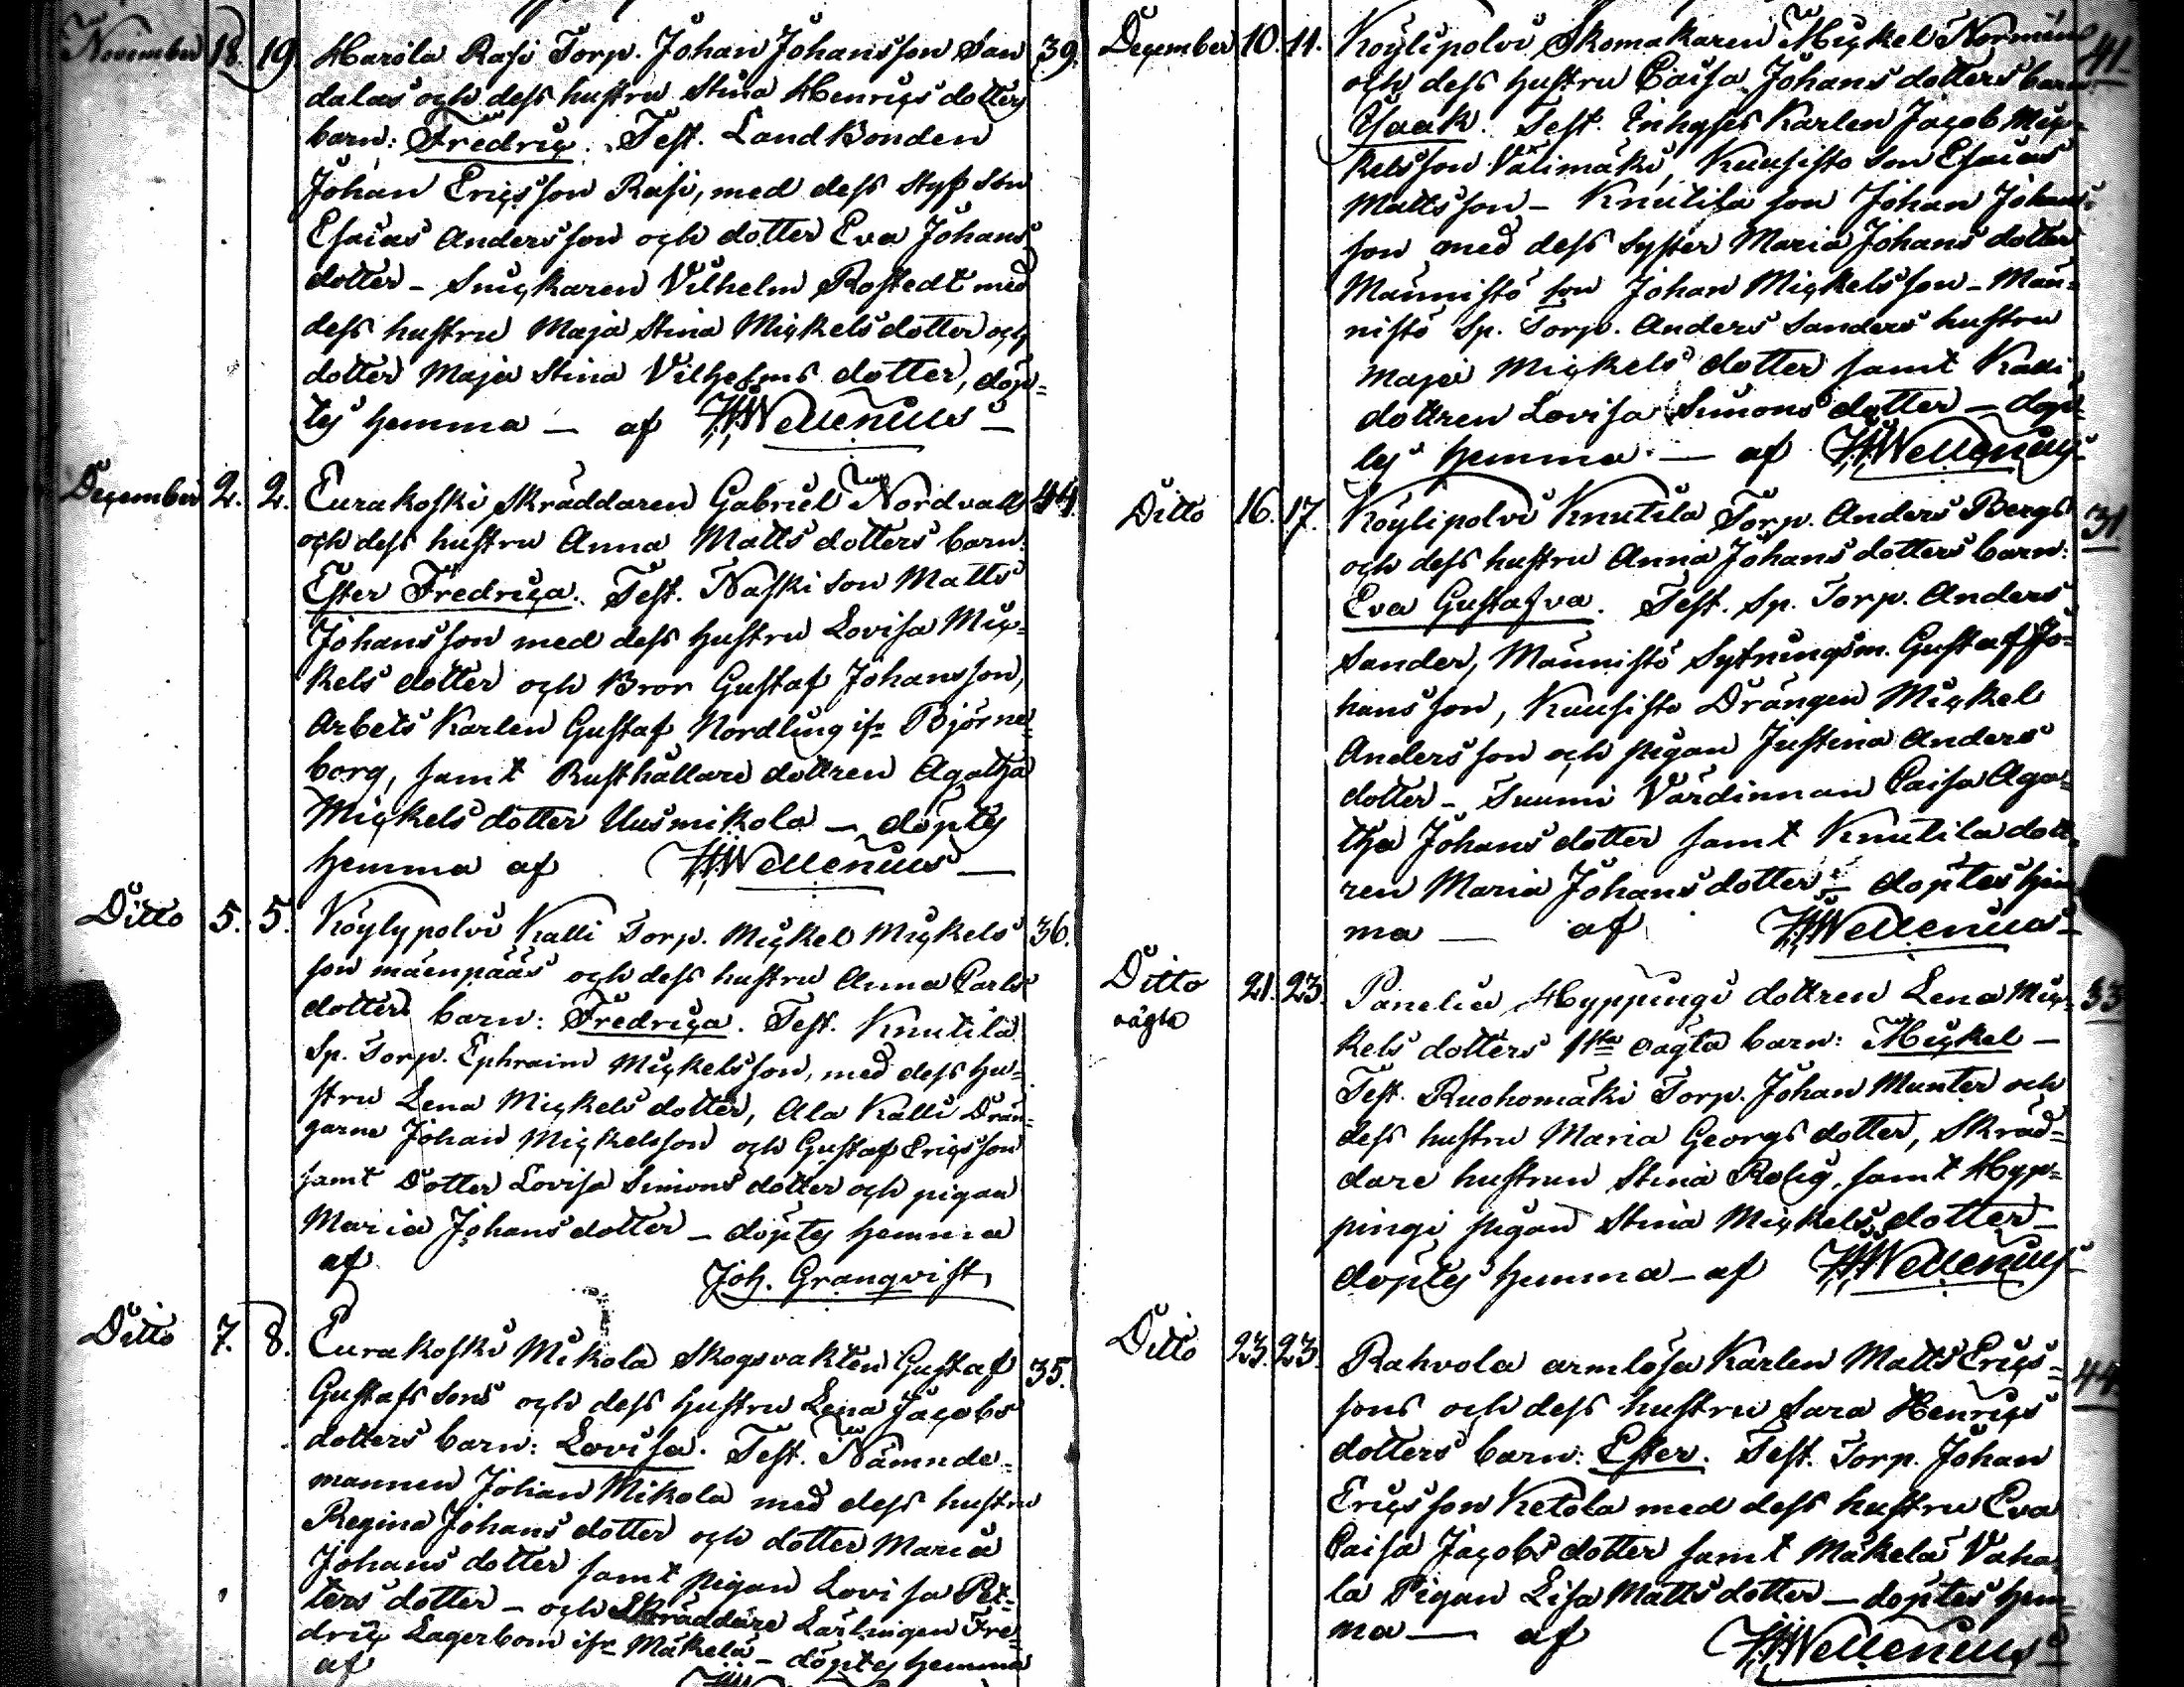 November 18. 19. Harola Rasi Torp. Johan Johansson San 39.
dalas och dess hustru Stina Henrics dotters
barn: Fredric. Test. Landbonden
Johan Ericsson Rasi, med dess styfson
Esaias Andersson och dotter Eva Johans
dotter – Snickaren Vilhelm Rostedt med
dess hustru Maja Stina Mickels dotter och
dotter Maja Stina Vilhelms dotter, döp=
tes hemma – af Wellenius –
December 2. 2. Eurakoski skräddaren Gabriel Nordvalls 44.
och dess hustru Anna Matts dotters barn:
Ester Fredrica. Test. Naski son Matts
Johansson med dess hustru Lovisa Mic=
kels dotter och Bror Gustaf Johansson,
Arbets Karlen Gustaf Nordling ifr Björne=
borg, samt Rusthållare dottren Agatha
Mickels dotter Uusmikola – döptes
hemma af Wellenius –
Ditto 5. 5. Köylypolvi Kalli Torp. Mickel Mickels 36.
son mäenpääs och dess hustru Anna Carls
dotters barn: Fredrica. Test. Knutila
Sp. Torp. Ephraim Mickelsson, med dess hu=
stru Lena Mickels dotter, Ala Kalli Drän=
garne Johan Mickelsson och Gustaf Ericsson
samt Dotter Lovisa Simons dotter och pigan
Maria Johans dotter – döptes hemma
af Joh. Granqvist
Ditto 7. 8. Eurakoski Mikola Skogsvakten Gustaf 35.
Gustafssons och dess hustru Lena Jacobs
dotters barn: Lovisa. Test. Nämnde=
mannen Johan Mikola med dess hustru
Regina Johans dotter och dotter Maria
Johans dotter samt pigan Lovisa Pet=
ters dotter – och Skräddare Lärlingen Fre=
dric Lagerbom ifr Mäkelä – döptes hemma
af
December 10. 11. Köylipolvi Skomakaren Mickel Normans 41.
och dess hustru Caisa Johans dotters barn
Esaak. Test. Inhyses Karlen Jacob Mic=
kelsson Välimäki, Kuusisto son Esaias
Mattsson – Knutila son Johan Johans=
son med dess syster Maria Johans dotter
Männistö son Johan Mickelsson – Män=
nistö Sp. Torp. Anders Sanders hustru
Maja Mickels dotter samt Kalli
dottren Lovisa Simons dotter – döp=
tes hemma – af Wellenius
Ditto 16. 17. Köylipolvi Knutila Torp. Anders Bergs 31.
och dess hustru Anna Johans dotters barn:
Eva Gustafva. Test. Sp. Torp. Anders
Sander, Männistö Sytningsm. Gustaf Jo=
hansson, Kuusisto Drängen Mickel
Andersson och pigan Justina Anders
dotter – Suumi Värdinnan Caisa Aga=
tha Johans dotter samt Knutila dott=
ren Maria Johans dotter – döptes hem
ma – af Wellenius
Ditto 21. 23. Panelia Hyppingi dottren Lena Mic= 33
oägta
kels dotters 1sta oägta barn: Mickel –
Test. Ruohomäki Torp. Johan Munter och
dess hustru Maria Georgs dotter, Skräd=
dare hustrun Stina Rolig, samt Hyp=
pingi pigan Stina Mickels dotter –
döptes hemma – af Wellenius
Ditto 23. 23. Rahvola armlösa Karlen Matts Erics= 44.
sons och dess hustru Sara Henrics
dotters barn: Ester. Test. Torp. Johan
Ericsson Ketola med dess hustru Eva
Caisa Jacobs dotter samt Mäkelä Vaha
la Pigan Lisa Matts dotter – döptes hem=
ma – af Wellenius